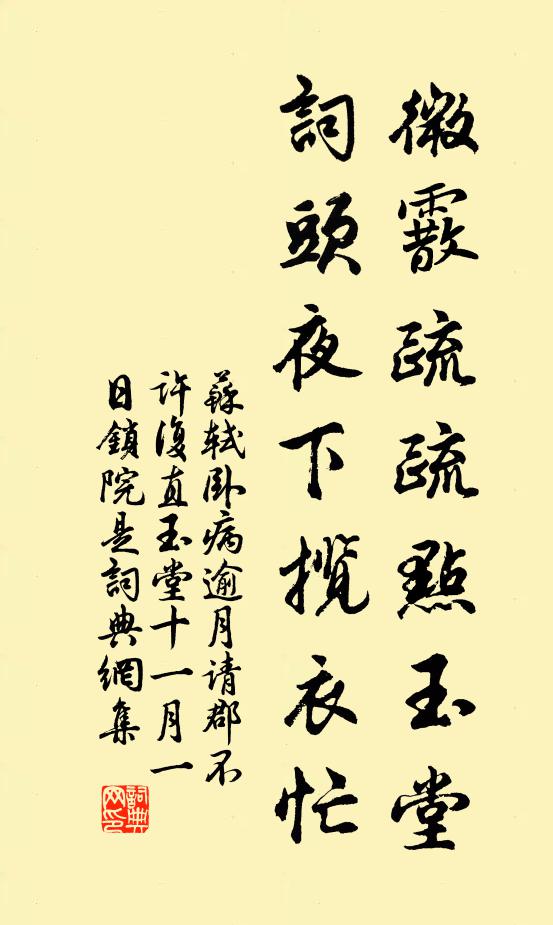 微霰疏疏點玉堂
詞頭夜下攬衣忙
蘇軾卧病逾月请郡不
許復直玉堂十一月一
日鎖院是詞典網集
詞典网印